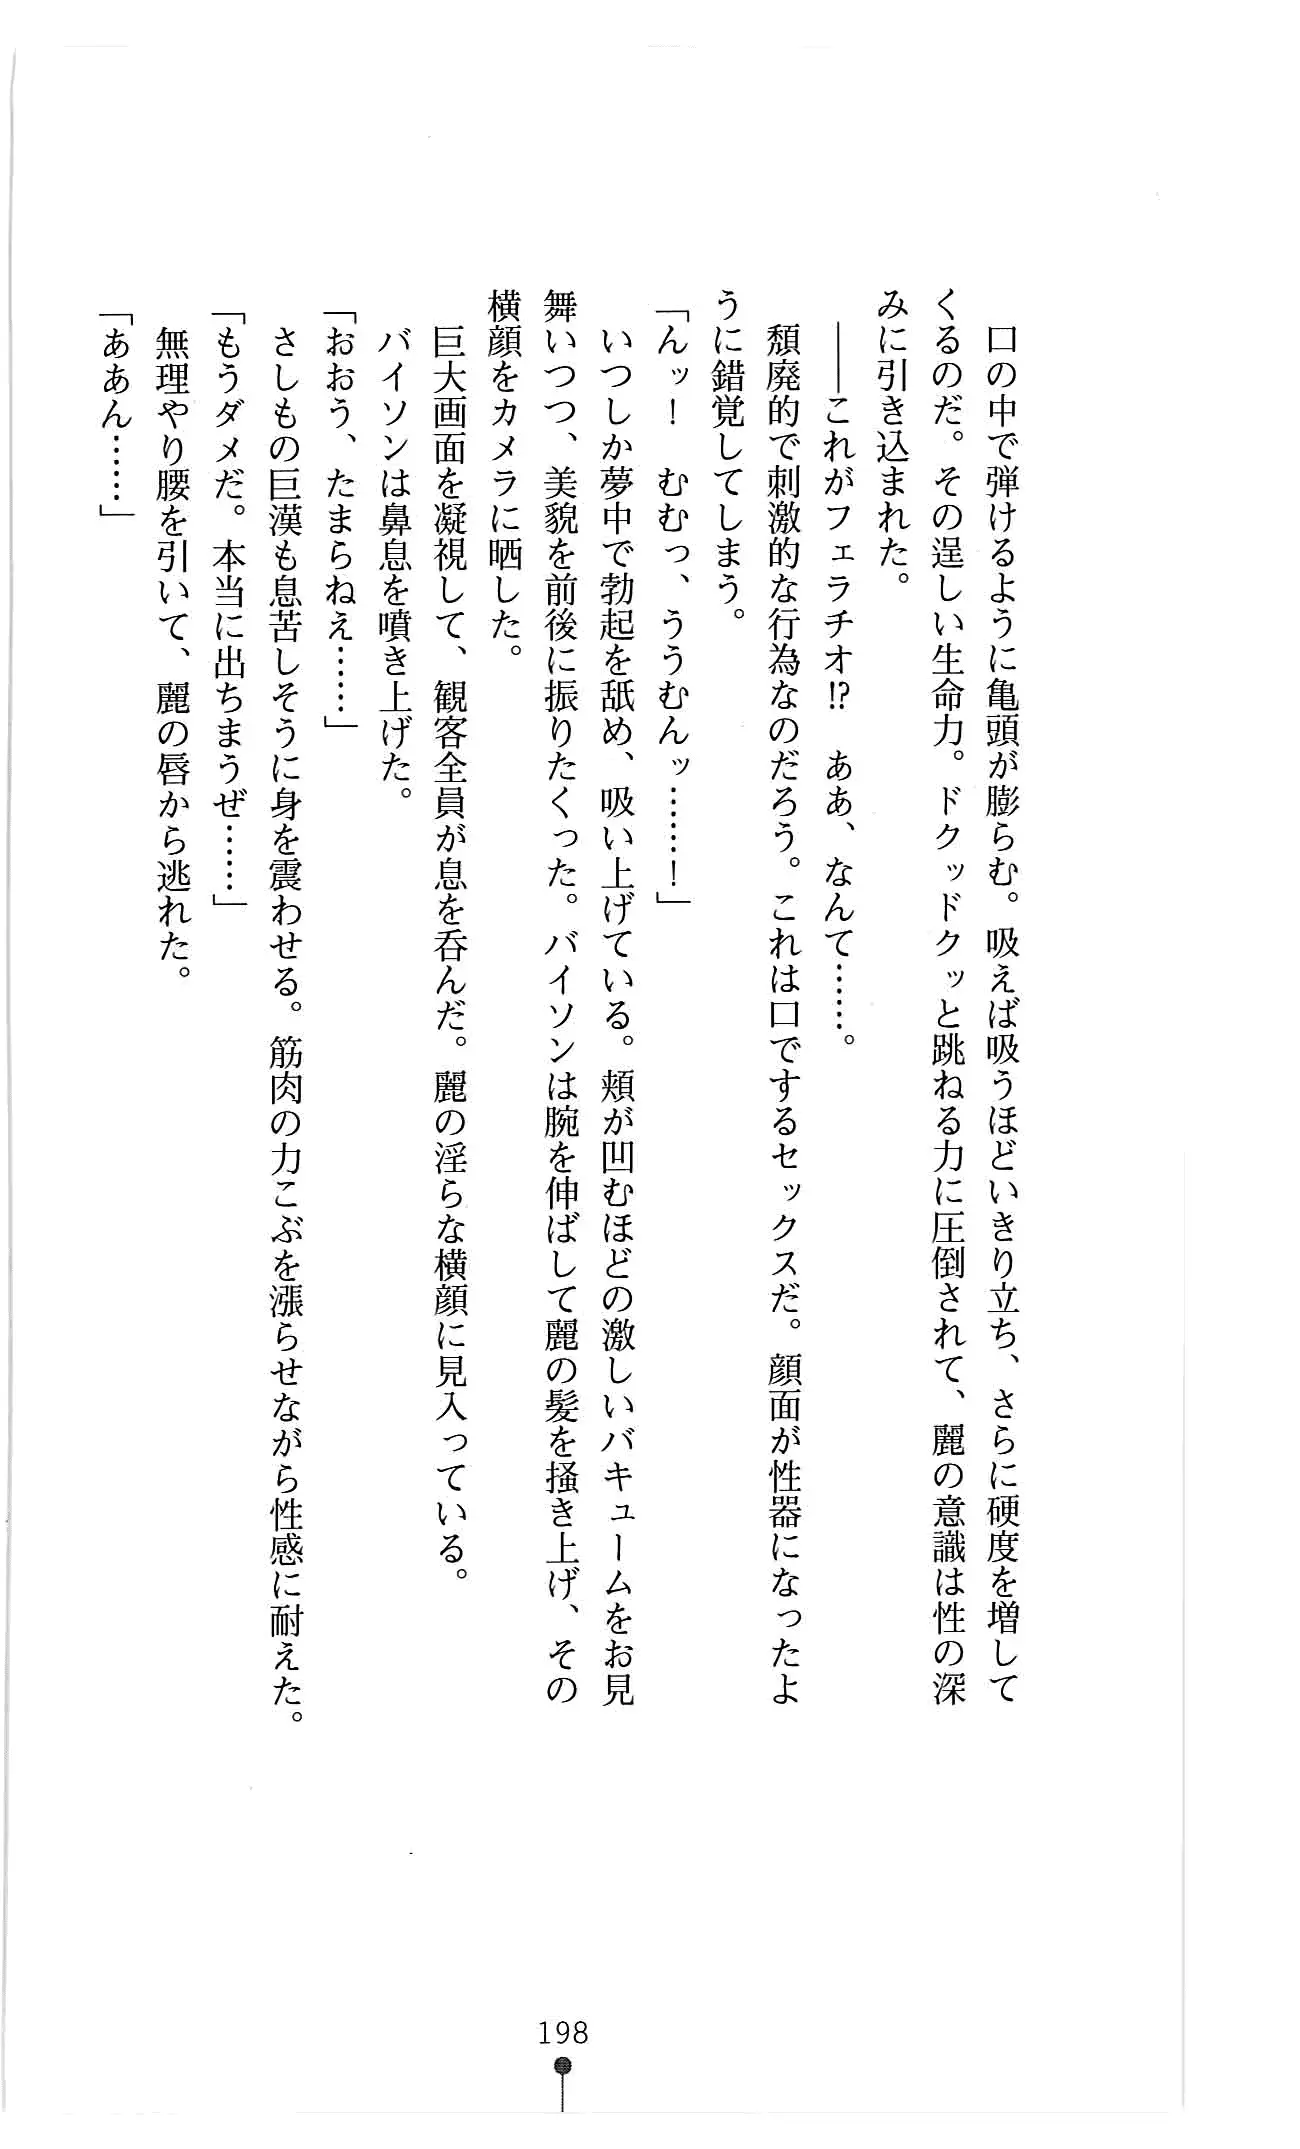 口の中で弾けるように亀頭が膨らむ。吸えば吸うほどいきり立ち、さらに硬度を増して
くるのだ。その逞しい生命力。ドクッドクッと跳ねる力に圧倒されて、麗の意識は性の深
みに引き込まれた。
――これがフェラチオ!?　ああ、なんて……。
頽廃的で刺激的な行為なのだろう。これは口でするセックスだ。顔面が性器になったよ
うに錯覚してしまう。
「んッ！　むむっ、ううむんッ……！」
いつしか夢中で勃起を舐め、吸い上げている。頬が凹むほどの激しいバキュームをお見
舞いつつ、美貌を前後に振りたくった。バイソンは腕を伸ばして麗の髪を掻き上げ、その
横顔をカメラに晒した。
巨大画面を凝視して、観客全員が息を呑んだ。麗の淫らな横顔に見入っている。
バイソンは鼻息を噴き上げた。
「おおう、たまらねえ……」
さしもの巨漢も息苦しそうに身を震わせる。筋肉の力こぶを漲らせながら性感に耐えた。
「もうダメだ。本当に出ちまうぜ……」
無理やり腰を引いて、麗の唇から逃れた。
「ああん……」
198